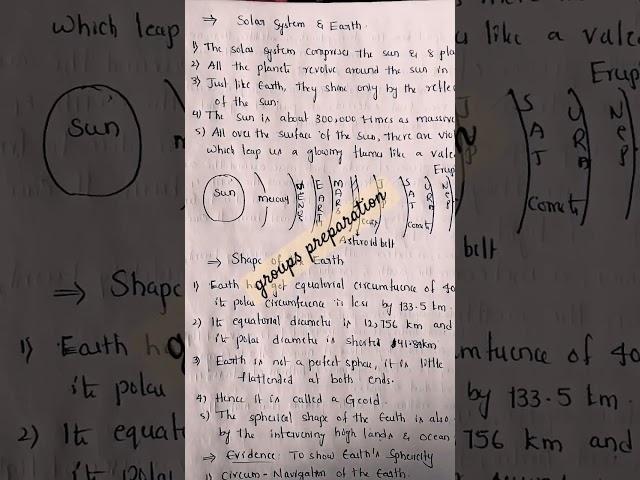 ⇒ Solar System & Earth.
1) The solar system comprises the sun & 8 pla
2) All the planets revolve around the sun in
3) Just like Earth, they shine only by the refle
of the sun.
4) The Sun is about 300,000 times as massive
5) All over the surface of the Sun, there are vio
which leap us a glowing flames like a valc
Erup
Sun
mercury
VENUS
EARTH
MARS
SAT
URA
NEP
Comets
Astroid belt
groups preparation
⇒ Shape of Earth
1) Earth got equatorial circumfuence of 40
it polar circumference is less by 133.5 km.
2) Its equatorial diameter is 12,756 km and
its polar diameter is shorted 41.89km.
3) Earth is not a perfect sphere, it is little
flattended at both ends.
4) Hence it is called a Geoid.
5) The spherical shape of the Earth is also
by the intervening high lands & ocean
⇒ Evidence: To show Earth's Sphericity
1) Circum-Navigation of the Earth.